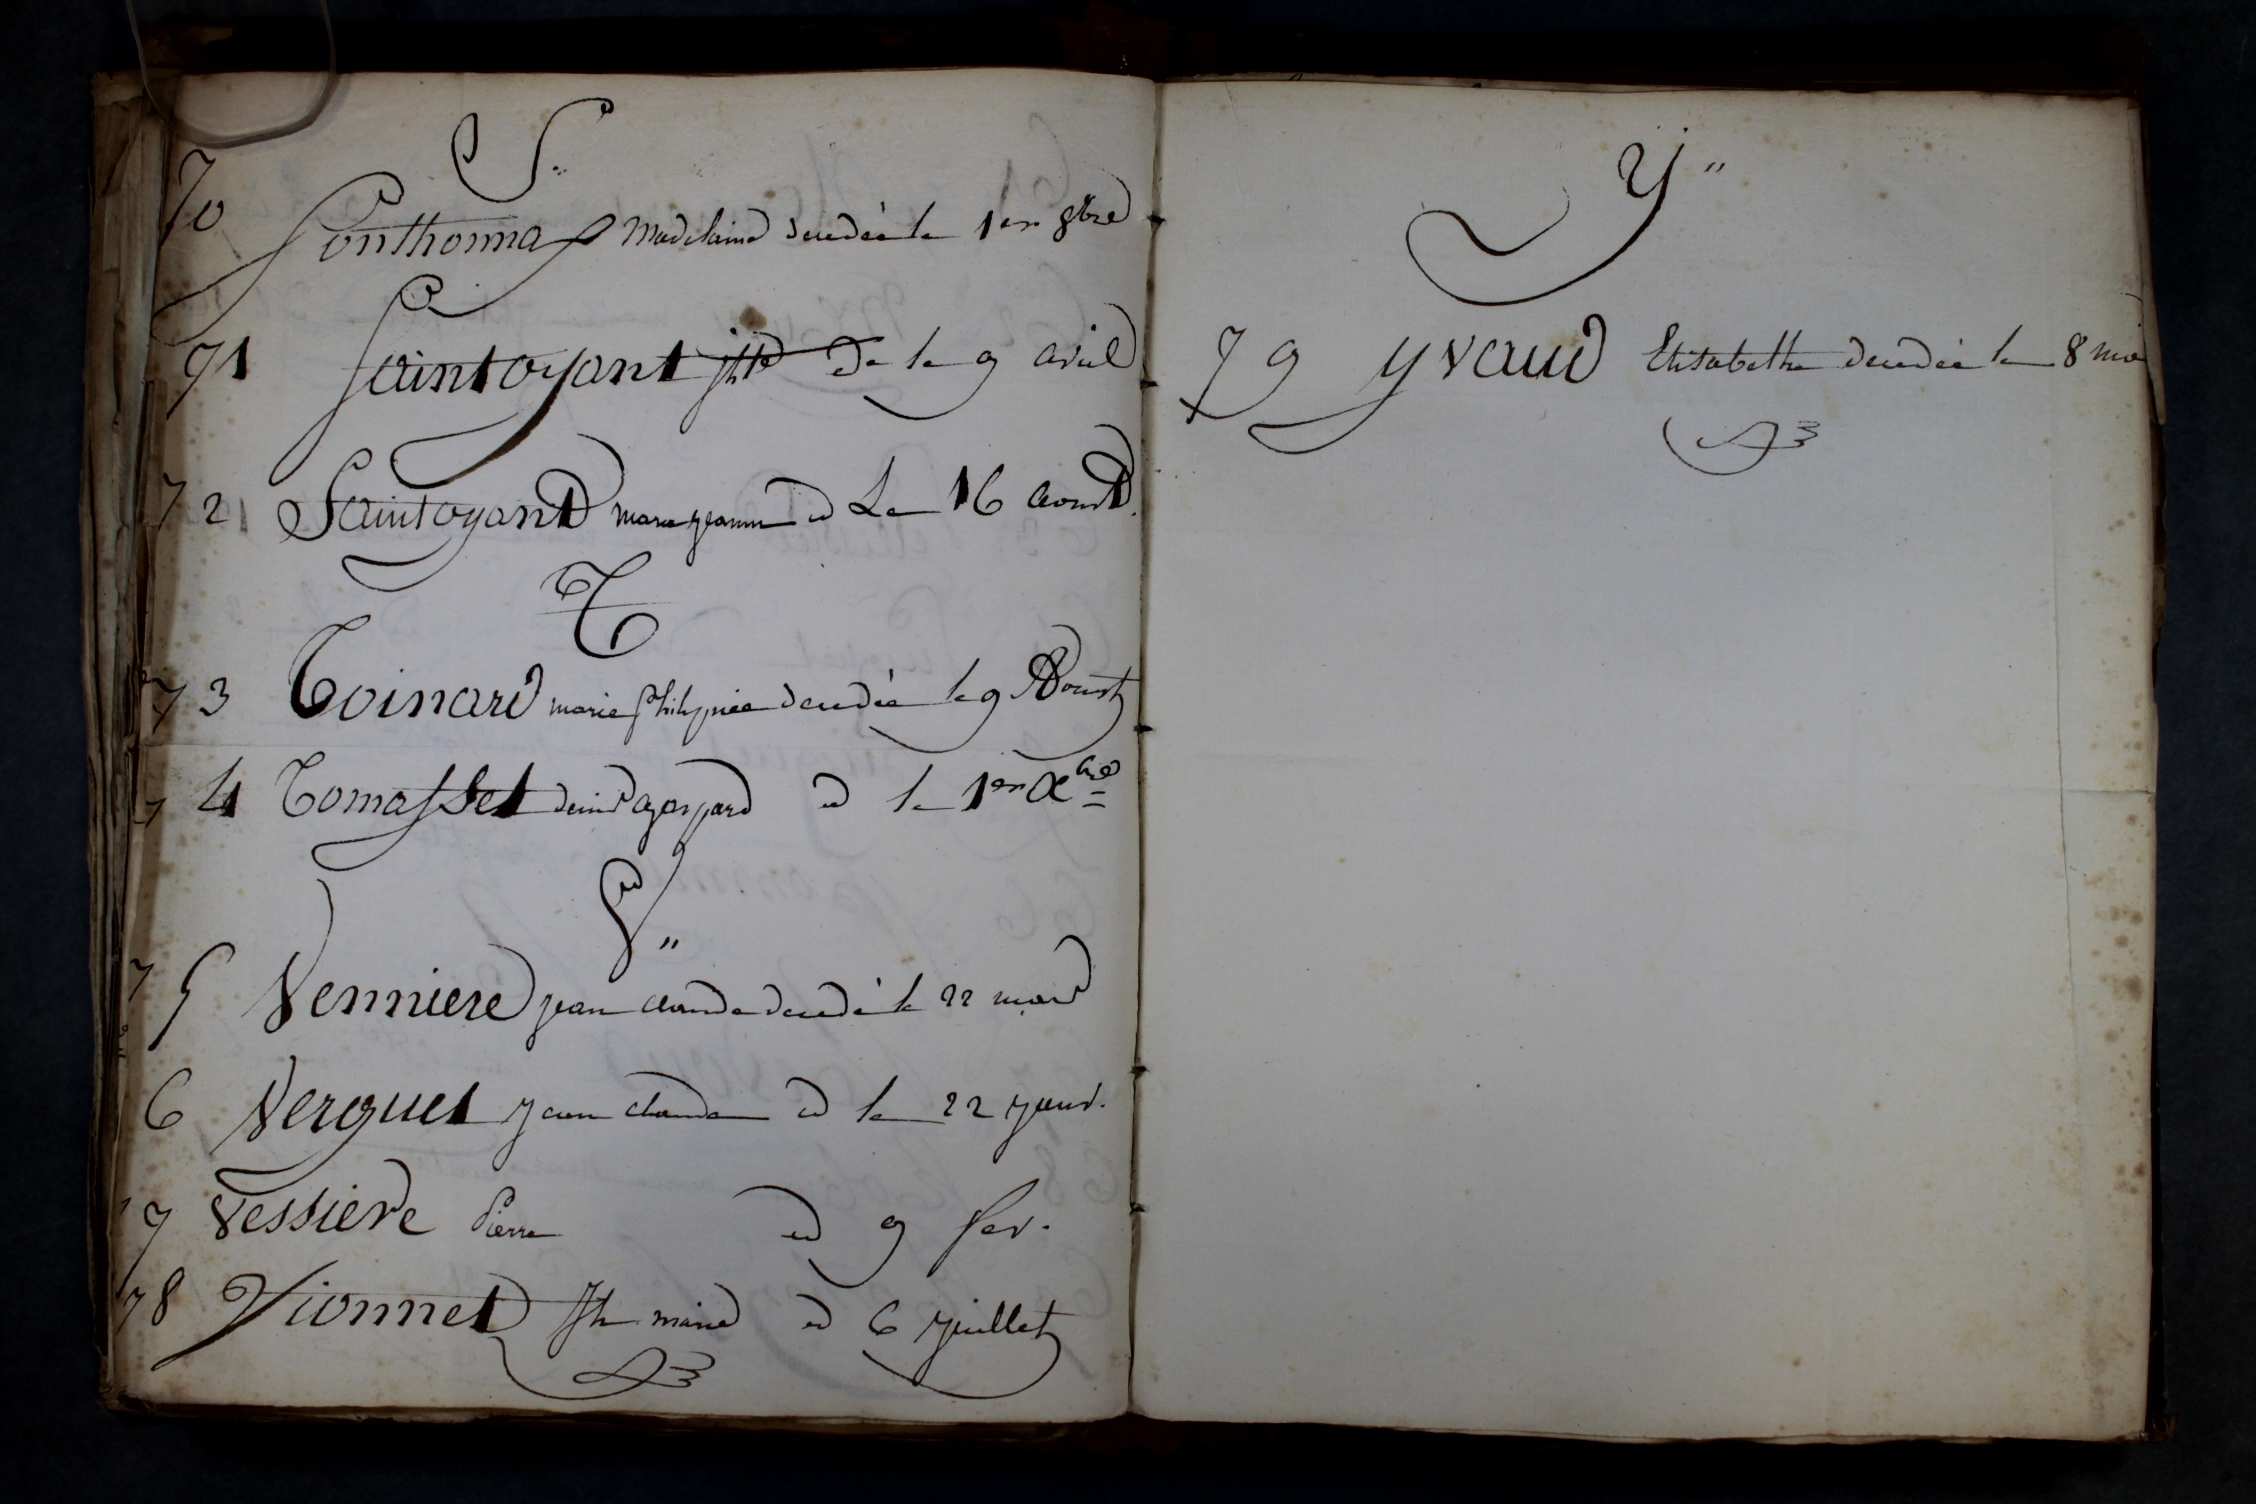 S..
70 Sonthonnas Madelaine décédée le 1er 8bre
71 Saintoyant jh De le 9 avril
72 Saintoyant marie jeanne id Le 16 aoust.
T
73 Toinard marie décédée le 9 Aoust
74 Tomasset denis gaspard id le 1er Xbre
V"
75 Venniere jean claude décédé le 22 mars
6 Verguet jean claude id le 22 janv.
77 Vessiere Pierre id 9 fev.
78 Vionnet Jh marie id 6 juillet
Y"
79 yvaud Elisabethe décédée le 8 mai